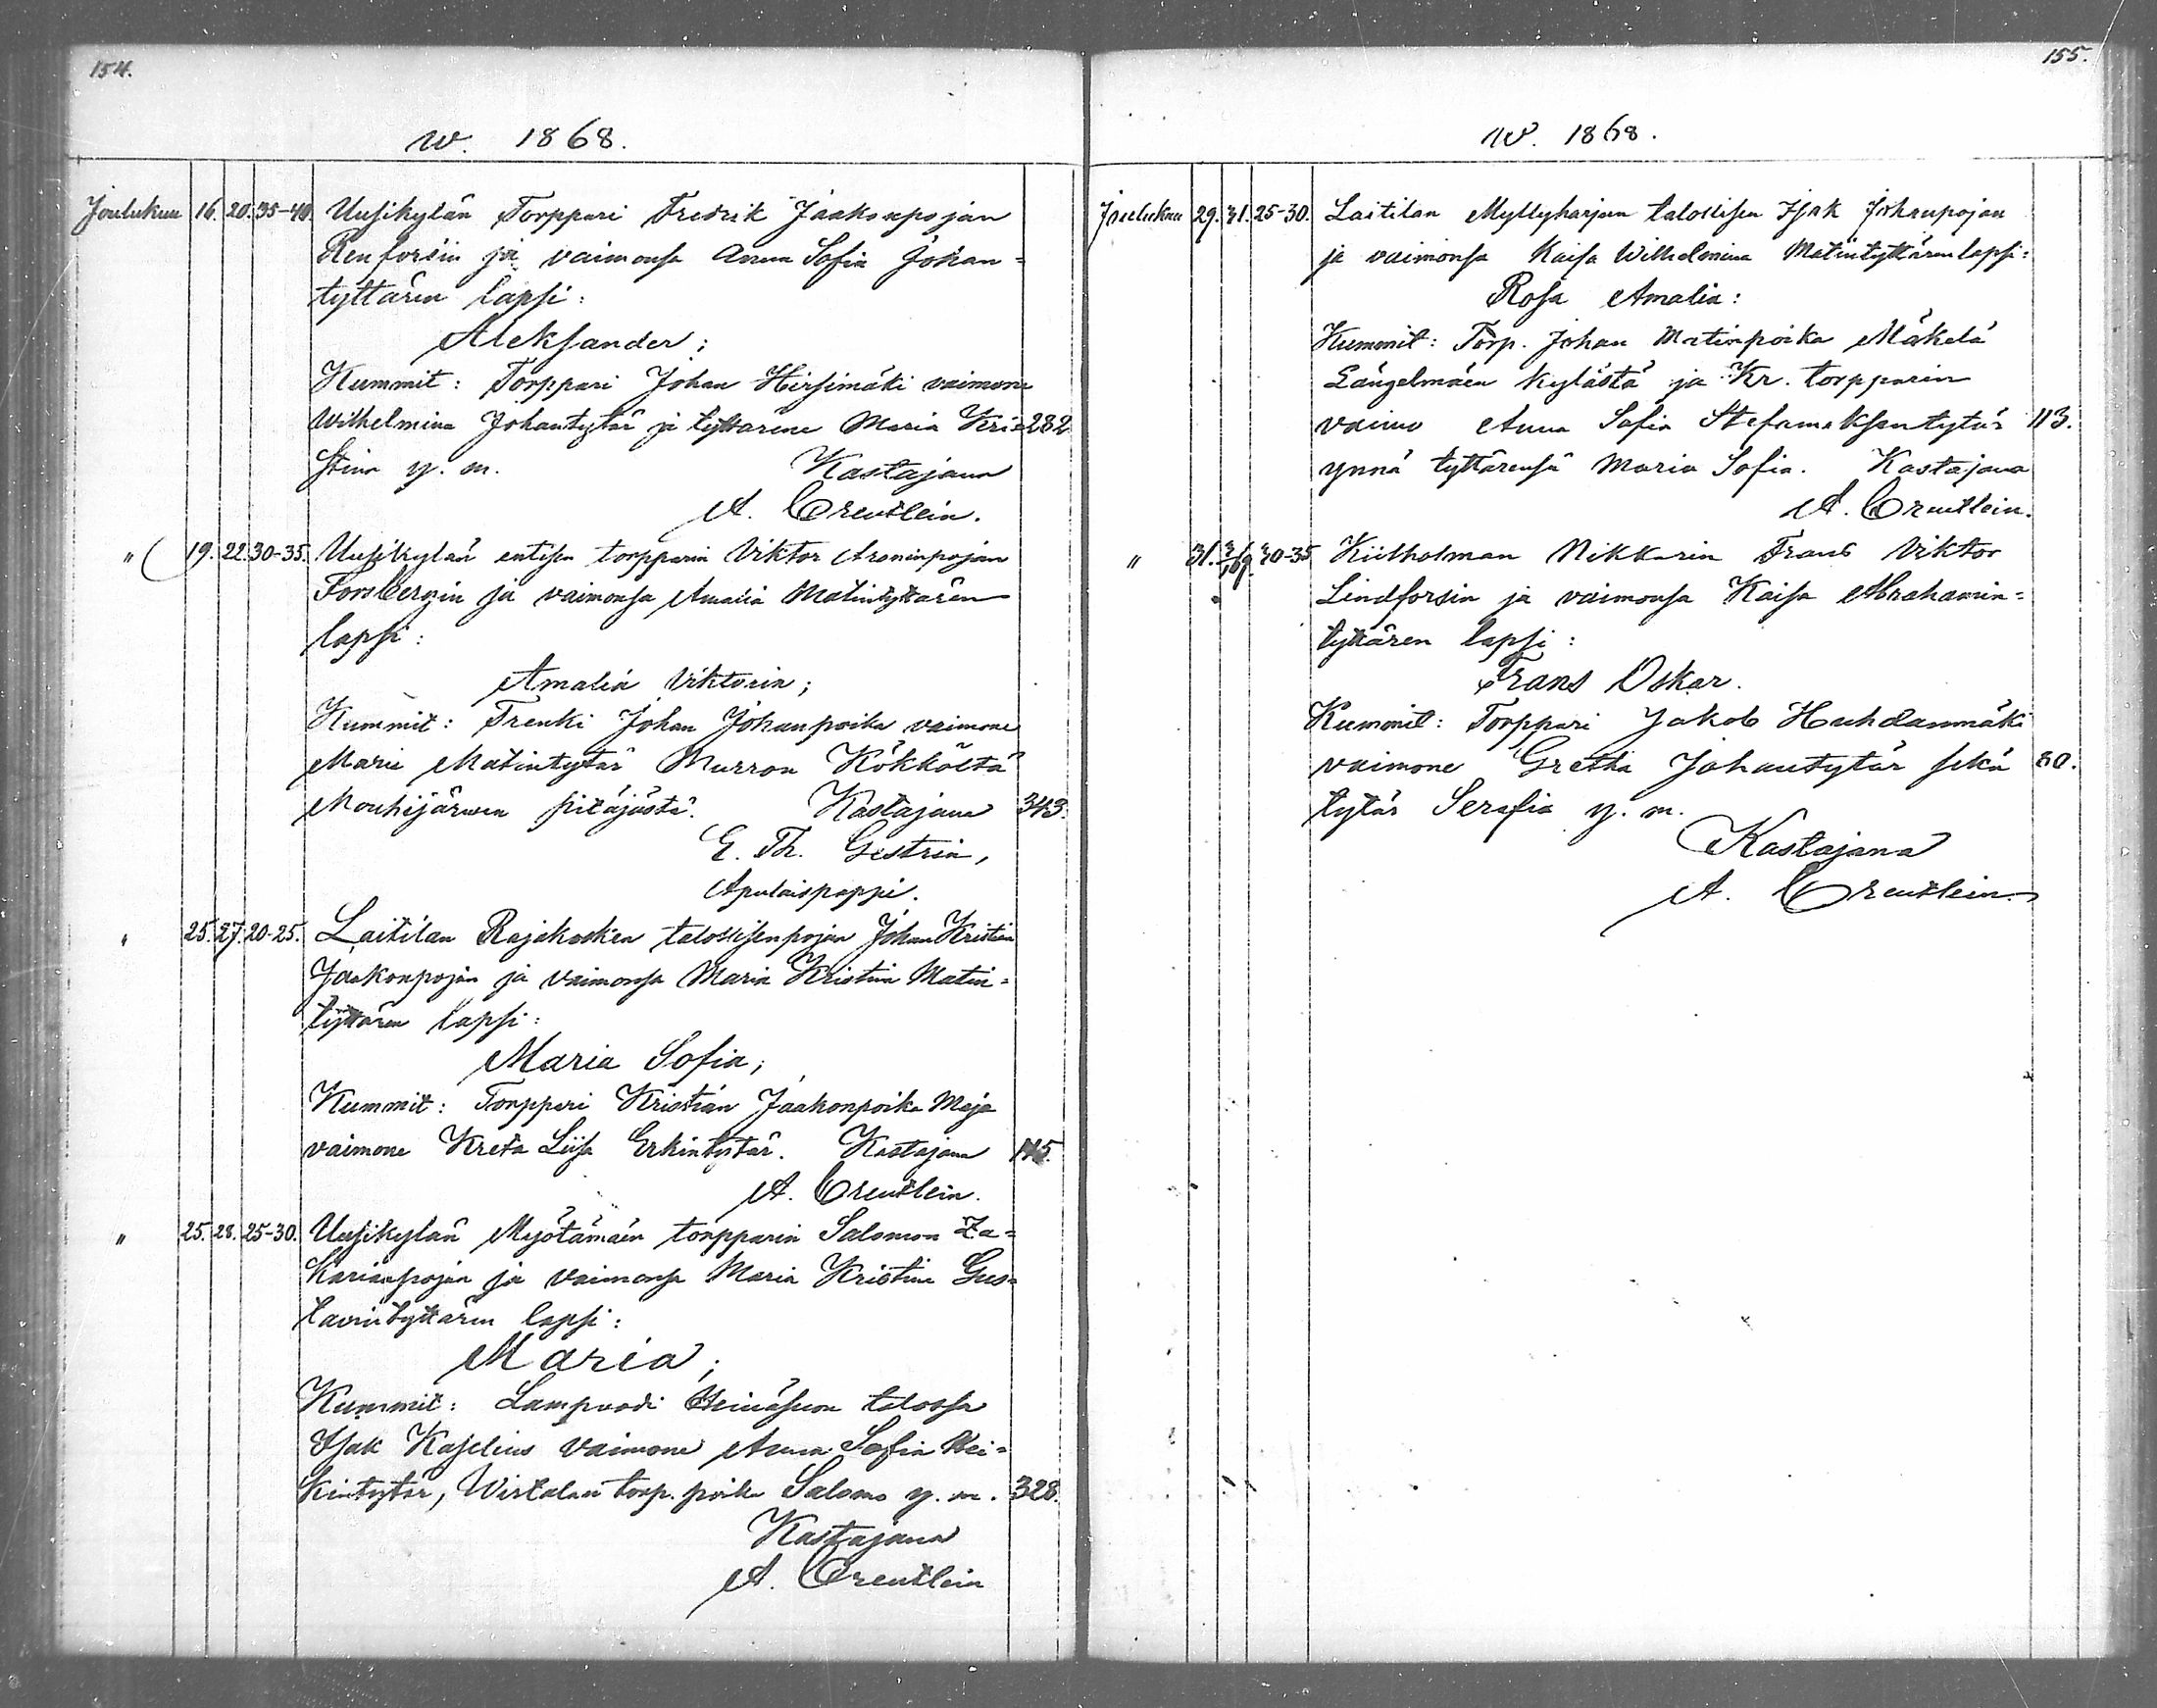 154.
w. 1868.
Joulukuu 16. 20. 35-40. Uusikylän Torppari Fredrik Jaakonpojan
Renforsin ja vaimonsa Anna Sofia Johan=
tyttären lapsi:
Aleksander;
Kummit: Torppari Johan Hirsimäki vaimone
Wilhelmina Johantytär ja tyttärine Maria Kri= 282
stina y. m. Kastajana
A. Creutlein.
" 19. 22. 30-35. Uusikylän entisen torpparin Viktor Aroninpojan
Forsbergin ja vaimonsa Amalia Matintyttären
lapsi:
Amalia Viktoria;
Kummit: Trenki Johan Johanpoika vaimone
Maria Matintytär Murron Kökköltä
Mouhijärwen pitäjästä. Kastajana 343.
E. Th. Gestrin,
Apulaispappi.
" 25. 27. 20-25. Laitilan Rajakosken talollisenpojan Johan Kristian
Jaakonpojan ja vaimonsa Maria Kristina Matin=
tyttären lapsi:
Maria Sofia;
Kummit: Torppari Kristian Jaakonpoika Maja
vaimone Kreta Liisa Erkintytär. Kastajana 145.
A. Creutlein.
" 25. 28. 25-30. Uusikylän Myötämäen torpparin Salomon Za=
karianpojan ja vaimonsa Maria Kristina Gus=
tavintyttären lapsi:
Maria;
Kummit: Lampuodi Heinäsuon talossa
Isak Kaselius vaimone Anna Sofia Hei=
kintytär, Wirtalan torp. poika Salomo y. m. 328.
Kastajana
A. Creutlein
155.
w. 1868.
Joulukuu 29. 31. 25-30. Laitilan Myllyharjun talollisen Isak Johanpojan
ja vaimonsa Kaisa Wilhelmina Matintyttären lapsi:
Rosa Amalia:
Kummit: Torp. Johan Matinpoika Mäkelä
Längelmäen kylästä ja Kr. torpparin
vaimo Anna Sofia Stefanuksentytär 113.
ynnä tyttärensä Maria Sofia. Kastajana
A. Creutlein.
" 31. 3/1 69. 30-35 Kiilholman Nikkarin Frans Viktor
Lindforsin ja vaimonsa Kaisa Abrahamin=
tyttären lapsi:
Frans Oskar.
Kummit: Torppari Jakob Huhdanmäki
vaimone Gretha Johantytär sekä 80.
tytär Serafia y. m.
Kastajana
A. Creutlein.